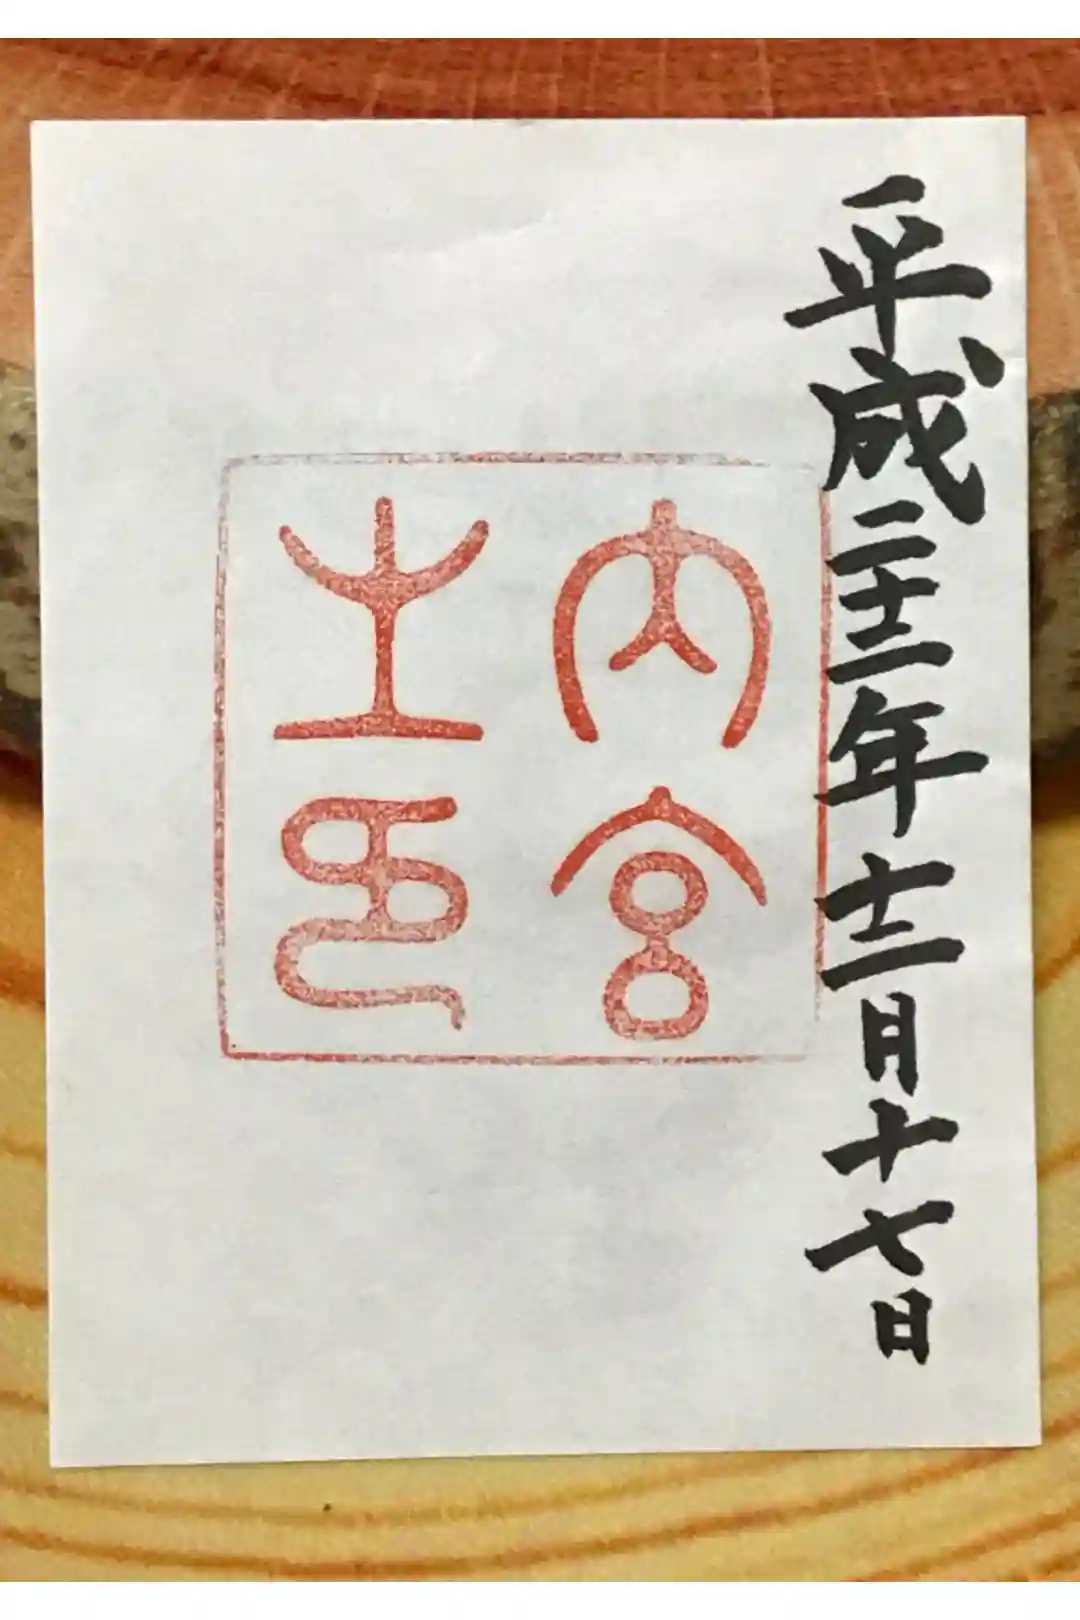 平成二十二年十二月十七日
内宮
之印